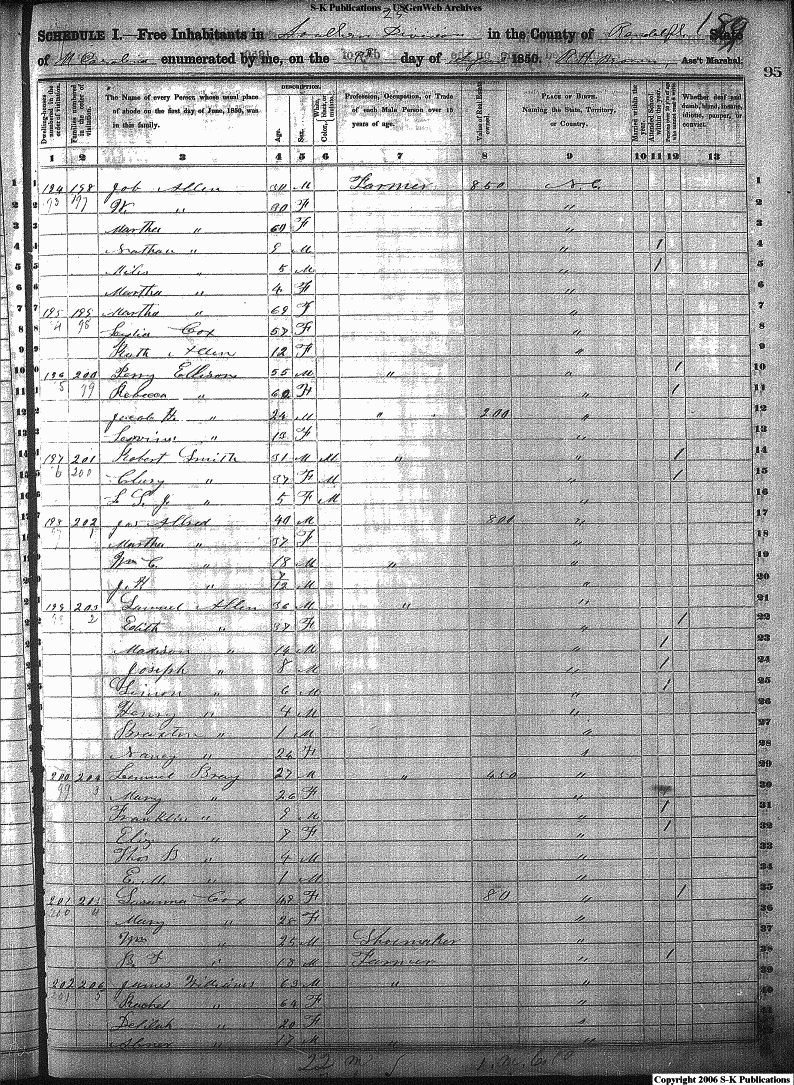 S-K Publications - USGenWeb Archives
SCHEDULE I.—Free Inhabitants in Southern Division in the County of Randolph State
of N Carolina enumerated by me, on the day of 1850. Ass't Marshal.
95
DESCRIPTION.
Dwelling-houses numbered in the order of visitation.
Families numbered in the order of visitation.
The Name of every Person whose usual place of abode on the first day of June, 1850, was in this family.
Age.
Sex.
Color, White, black, or mulatto.
Profession, Occupation, or Trade of each Male Person over 15 years of age.
Value of Real Estate owned.
PLACE OF BIRTH. Naming the State, Territory, or Country.
Married within the year.
Attended School within the year.
Persons over 20 y'rs of age who cannot read & write.
Whether deaf and dumb, blind, insane, idiotic, pauper, or convict.
1 2 3 4 5 6 7 8 9 10 11 12 13
1 194 198 Job Allen M Farmer 850 N C 1
2 93 197 W. " F " 2
3 Martha " 60 F " 3
4 Nathan " 9 M " / 4
5 Miles " 5 M " / 5
6 Martha " 4 F " 6
7 195 199 Martha " 69 F " 7
8 4 98 Lydia Cox 57 F " 8
9 Ruth Allen 12 F " 9
10 196 200 Terry Ellison 55 M " " / 10
11 5 99 Rebecca " 60 F " / 11
12 Jacob H. " 24 M " 200 " 12
13 " 13 F " 13
14 197 201 Robert Smith 31 M M " " / 14
15 6 200 " 37 F M " / 15
16 L. S. J. " 5 F M " 16
17 198 202 Jas Allred 40 M 800 " 17
18 7 1 Martha " 37 F " 18
19 Wm C. " 18 M " " 19
20 " 12 M " 20
21 199 203 Samuel Allen 36 M " " 21
22 2 Edith " 38 F " / 22
23 Madison " 14 M " / 23
24 Joseph " 8 M " / 24
25 Simon " 6 M " / 25
26 Henry " 4 M " 26
27 Braxton " 1 M " 27
28 Nancy " 24 F " 28
29 200 204 Lemuel Bray 27 M " 450 " 29
30 99 3 Mary " 26 F " 30
31 Franklin " 9 M " / 31
32 Eliz " 7 F " / 32
Thos B " 4 M "
E. M. " 1 M "
35 201 205 Susanna Cox 48 F 80 " / 35
36 200 4 Mary " 28 F " 36
37 Wm " 25 M Shoemaker " 37
38 B. F. " 18 M Farmer " / 38
39 202 206 James Williams 63 M " " 39
40 201 5 Rachel " 64 F " 40
Delilah " 20 F "
Abner " 17 M " "
22 m
Copyright 2006 S-K Publications